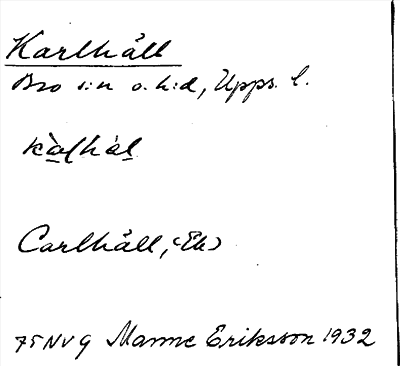 Karlhäll
Bro s:n o. h:d, Upps. l.
Carlhäll, (Ek)
75NV9 Manne Eriksson 1932